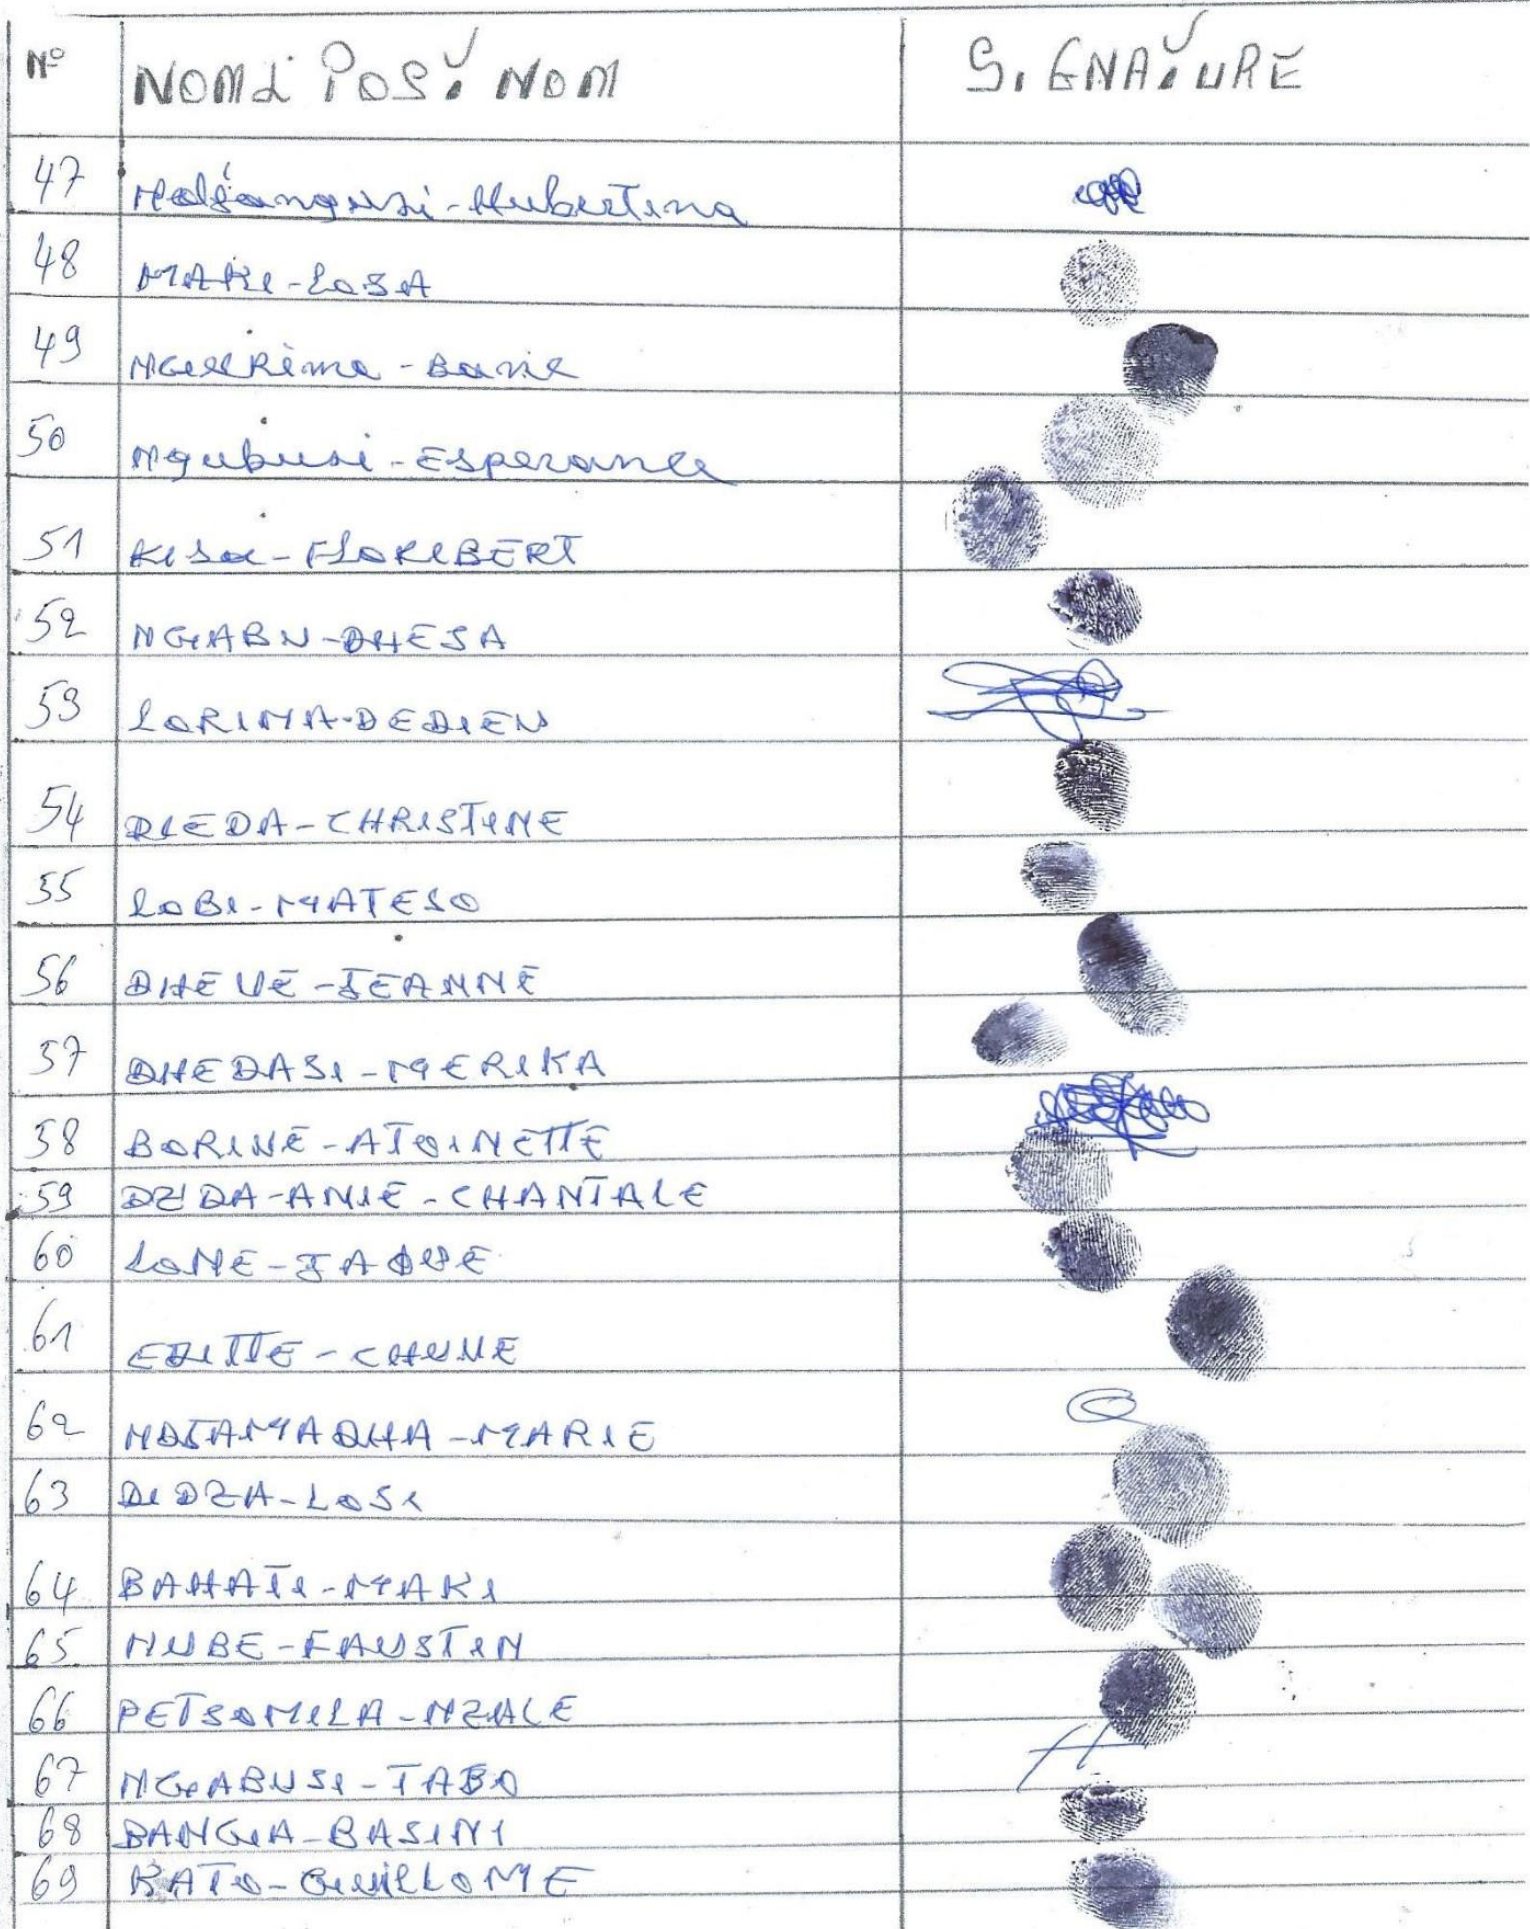 N° NOM & POST. NOM SIGNATURE
47 Hubertina
48 MAKI-LOSA
49
50 Ngubusi-Esperance
51 KISA-FLORIBERT
52 NGABU-DHESA
53 LORIMA-DEDIEU
54 DIEDA-CHRISTINE
55 LOBI-MATESO
56 DHEVE-JEANNE
57 DHEDASI-MERIKA
58 BORIVE-ATOINETTE
59 DZDA-ANIE-CHANTALE
60 LONE-JAQUE
61 EDITTE-CHUVE
62 NDJAMADHA-MARIE
63 DIDZA-LOSI
64 BAHATI-MAKI
65 NUBE-FAUSTIN
66 PETSOMILA-NZALE
67 NGABUSI-TABO
68 BANGA-BASINI
69 BATO-GUILLOME